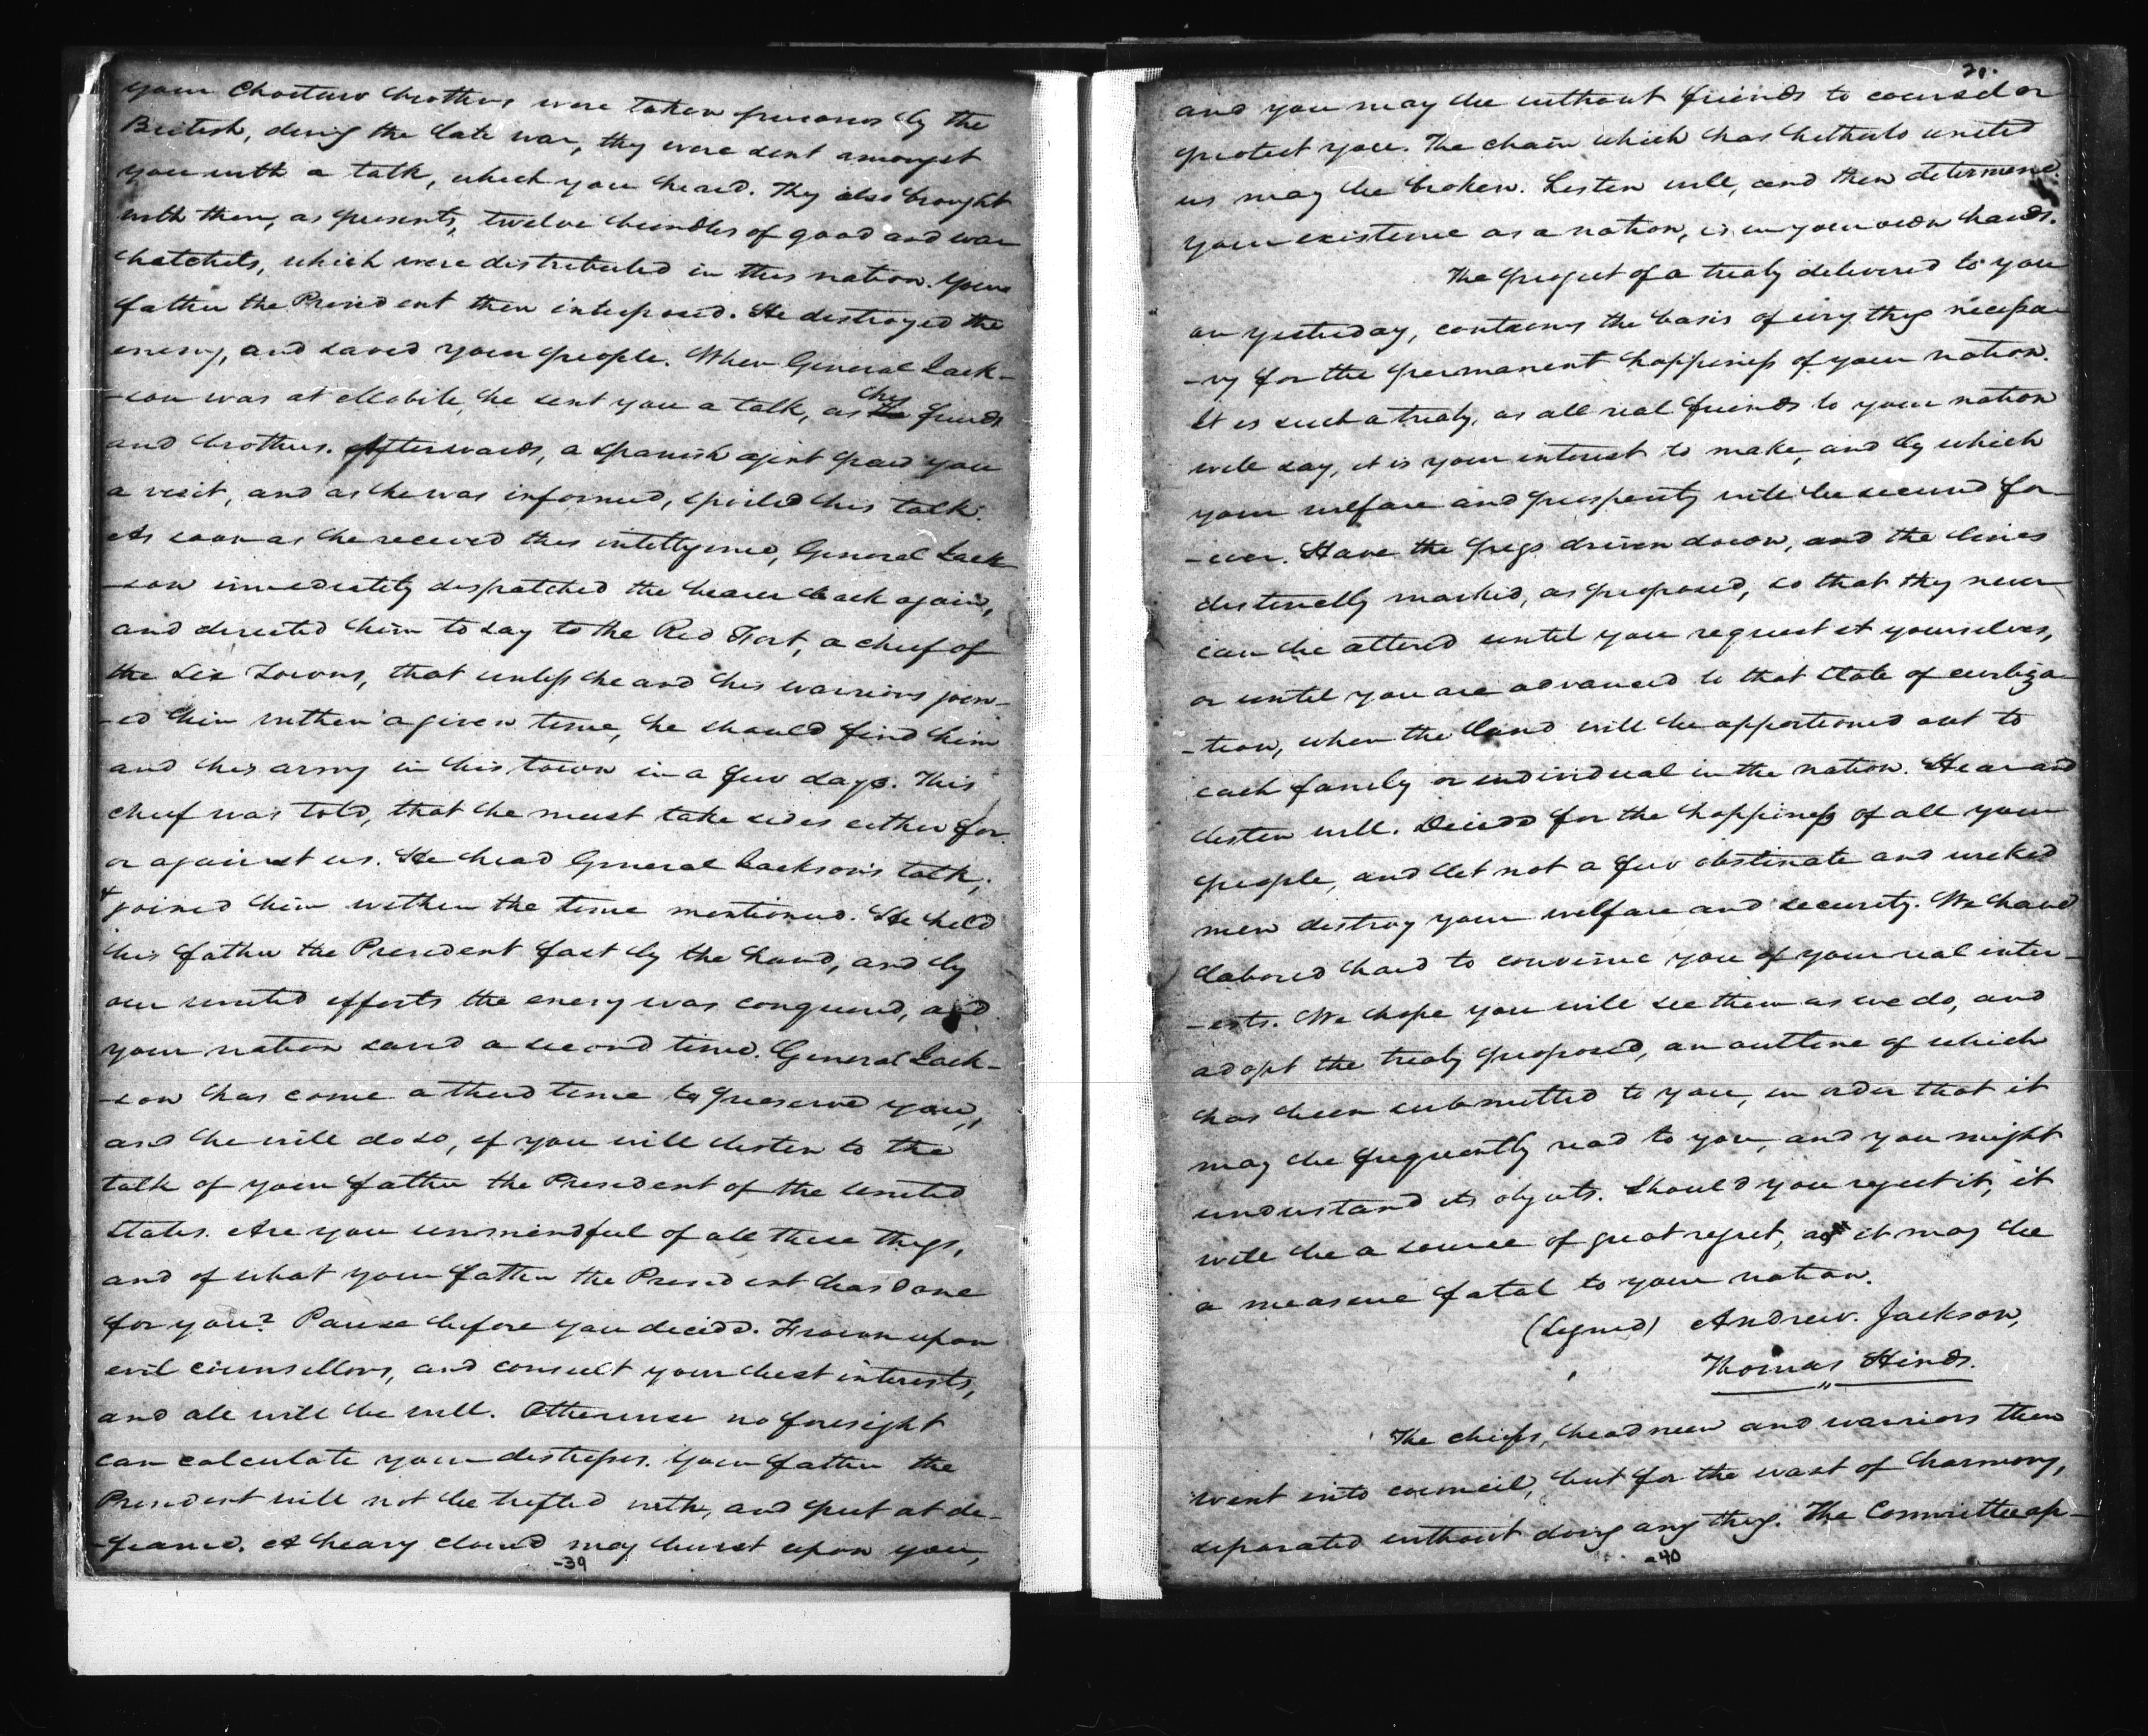 your Choctaw brothers were taken prisoners by the
British, during the late war, they were sent amongst
you with a talk, which you heard. They also brought
with them, as presents, twelve bundles of good and war
hatchets, which were distributed in this nation. Your
father the President then interposed. He destroyed the
enemy, and saved your people. When General Jack-
-son was at Mobile, he sent you a talk, as his friends
and brothers. Afterwards, a Spanish agent paid you
a visit, and as he was informed, spoiled his talk.
As soon as he received this intelligence, General Jack-
-son immediately despatched the bearer back again,
and directed him to say to the Red Fort, a chief of
the Six Towns, that unless he and his warriors join-
-ed him within a given time, he should find him
and his army in his town in a few days. This
chief was told, that he must take sides either for
or against us. He heard General Jackson's talk,
& joined him within the time mentioned. He held
his father the President fast by the hand, and by
our united efforts the enemy was conquered, and
your nation saved a second time. General Jack-
-son has come a third time to preserve you,
and he will do so, if you will listen to the
talk of your father the President of the United
States. Are you unmindful of all these things,
and of what your father the President has done
for you? Pause before you decide. Frown upon
evil counsellors, and consult your best interests,
and all will be well. Otherwise no foresight
can calculate your distresses. Your father the
President will not be trifled with, and put at de-
-fiance. A heavy cloud may burst upon you,
-39
21.
and you may be without friends to counsel or
protect you. The chain which has hitherto united
us may be broken. Listen well, and then determine.
your existence as a nation, is in your own hands.
The project of a treaty delivered to you
on yesterday, contains the basis of every thing necessa-
-ry for the permanent happiness of your nation.
It is such a treaty, as all real friends to your nation
will say, it is your interest to make, and by which
your welfare and prosperity will be secured for-
-ever. Have the pegs driven down, and the lines
distinctly marked, as proposed, so that they never
can be altered until you request it yourselves,
or until you are advanced to that state of civiliza-
-tion, when the land will be apportioned out to
each family or individual in the nation. Hear and
listen well. Decide for the happiness of all your
people, and let not a few obstinate and wicked
men destroy your welfare and security. We have
labored hard to convince you of your real inter-
-ests. We hope you will see them as we do, and
adopt the treaty proposed, an outline of which
has been submitted to you, in order that it
may be frequently read to you, and you might
understand its objects. Should you reject it, it
will be a source of great regret, as it may be
a measure fatal to your nation.
(Signed) Andrew. Jackson,
" Thomas Hinds.
The chiefs, head men and warriors then
went into council, but for the want of harmony,
separated without doing any thing. The Committee ap-
-40